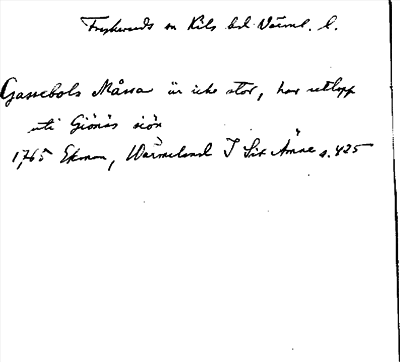 Fryksands sn Kils hd Värml. l.
Gassebols Måssa är icke stor, har utlopp
uti Giönäs siön
1765 Ekman, Wärmeland I Sit Ämne s. 425